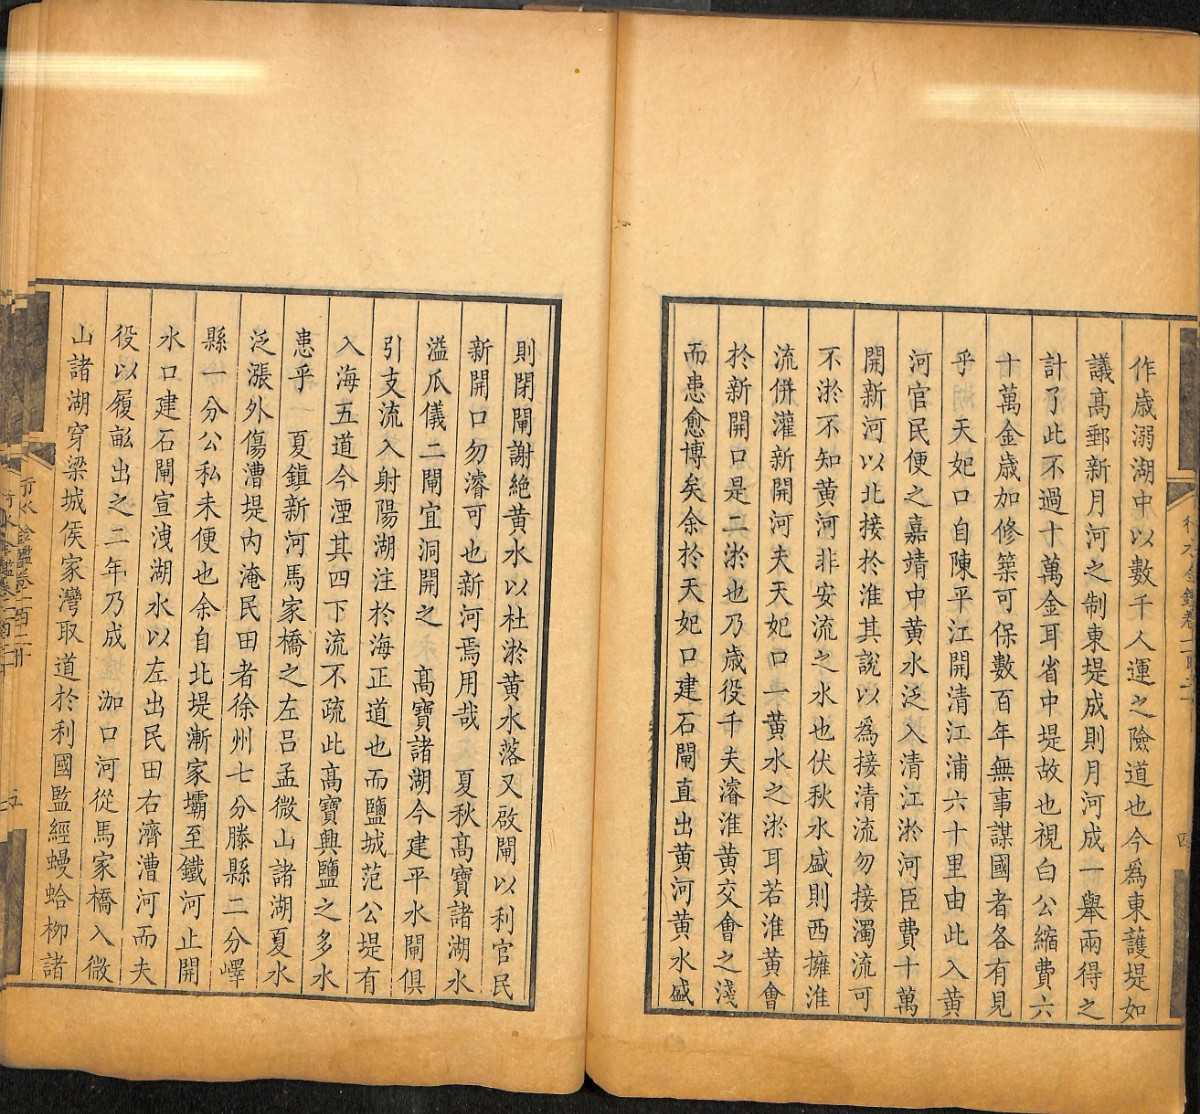 作歲溺湖中以數千人運之險道也今爲東護堤如
議高郵新月河之制東堤成則月河成一舉兩得之
計了此不過十萬金耳省中堤故也視白公縮費六
十萬金歲加修築可保數百年無事謀國者各有見
乎　天妃口自陳平江開清江浦六十里由此入黄
河官民便之嘉靖中黄水泛入清江淤河臣費十萬
開新河以北接於淮其說以爲接清流勿接濁流可
不淤不知黄河非安流之水也伏秋水盛則西擁淮
流併灌新開河夫天妃口一黄水之淤耳若淮黄會
於新開口是二淤也乃歲役千夫濬淮黄交會之淺
而患愈博矣余於天妃口建石閘直出黄河黄水盛
則閉閘謝絶黄水以杜淤黄水落又啟閘以利官民
新開口勿濬可也新河焉用哉　夏秋高寶諸湖水
溢瓜儀二閘宜洞開之　高寶諸湖今建平水閘俱
引支流入射陽湖注於海正道也而鹽城范公堤有
入海五道今湮其四下流不疏此高寶興鹽之多水
患乎　夏鎮新河馬家橋之左吕孟微山諸湖夏水
泛漲外傷漕堤内淹民田者徐州七分滕縣二分嶧
縣一分公私未便也余自北堤漸家壩至鐵河止開
水口建石閘宣洩湖水以左出民田右濟漕河而夫
役以履畝出之二年乃成　泇口河從馬家橋入微
山諸湖穿梁城侯家灣取道於利國監經蟃蛤柳諸